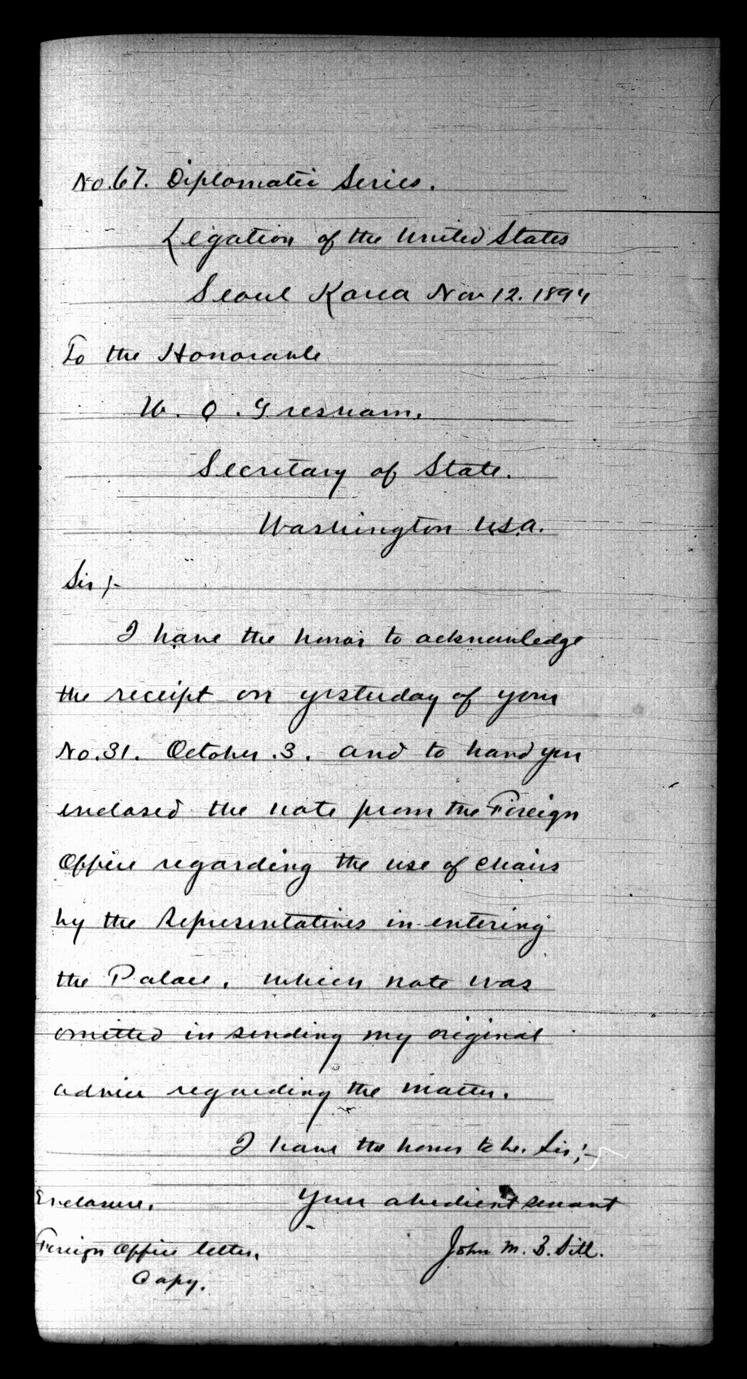 No. 67. Diplomatic Series.
Legation of the United States
Seoul Korea Nov 12. 1894
To the Honorable
W. Q. Gresham.
Secretary of State.
Washington U.S.A.
Sir;-
I have the honor to acknowledge
the receipt on yesterday of your
No. 31. October 3. and to hand you
enclosed the note from the Foreign
Office regarding the use of chairs
by the Representatives in entering
the Palace, which note was
omitted in sending my original
advice regarding the matter.
I have the honor to be, Sir;-
Your obedient servant
Enclosure.
John M. B. Sill.
Foreign Office letter,
Copy.